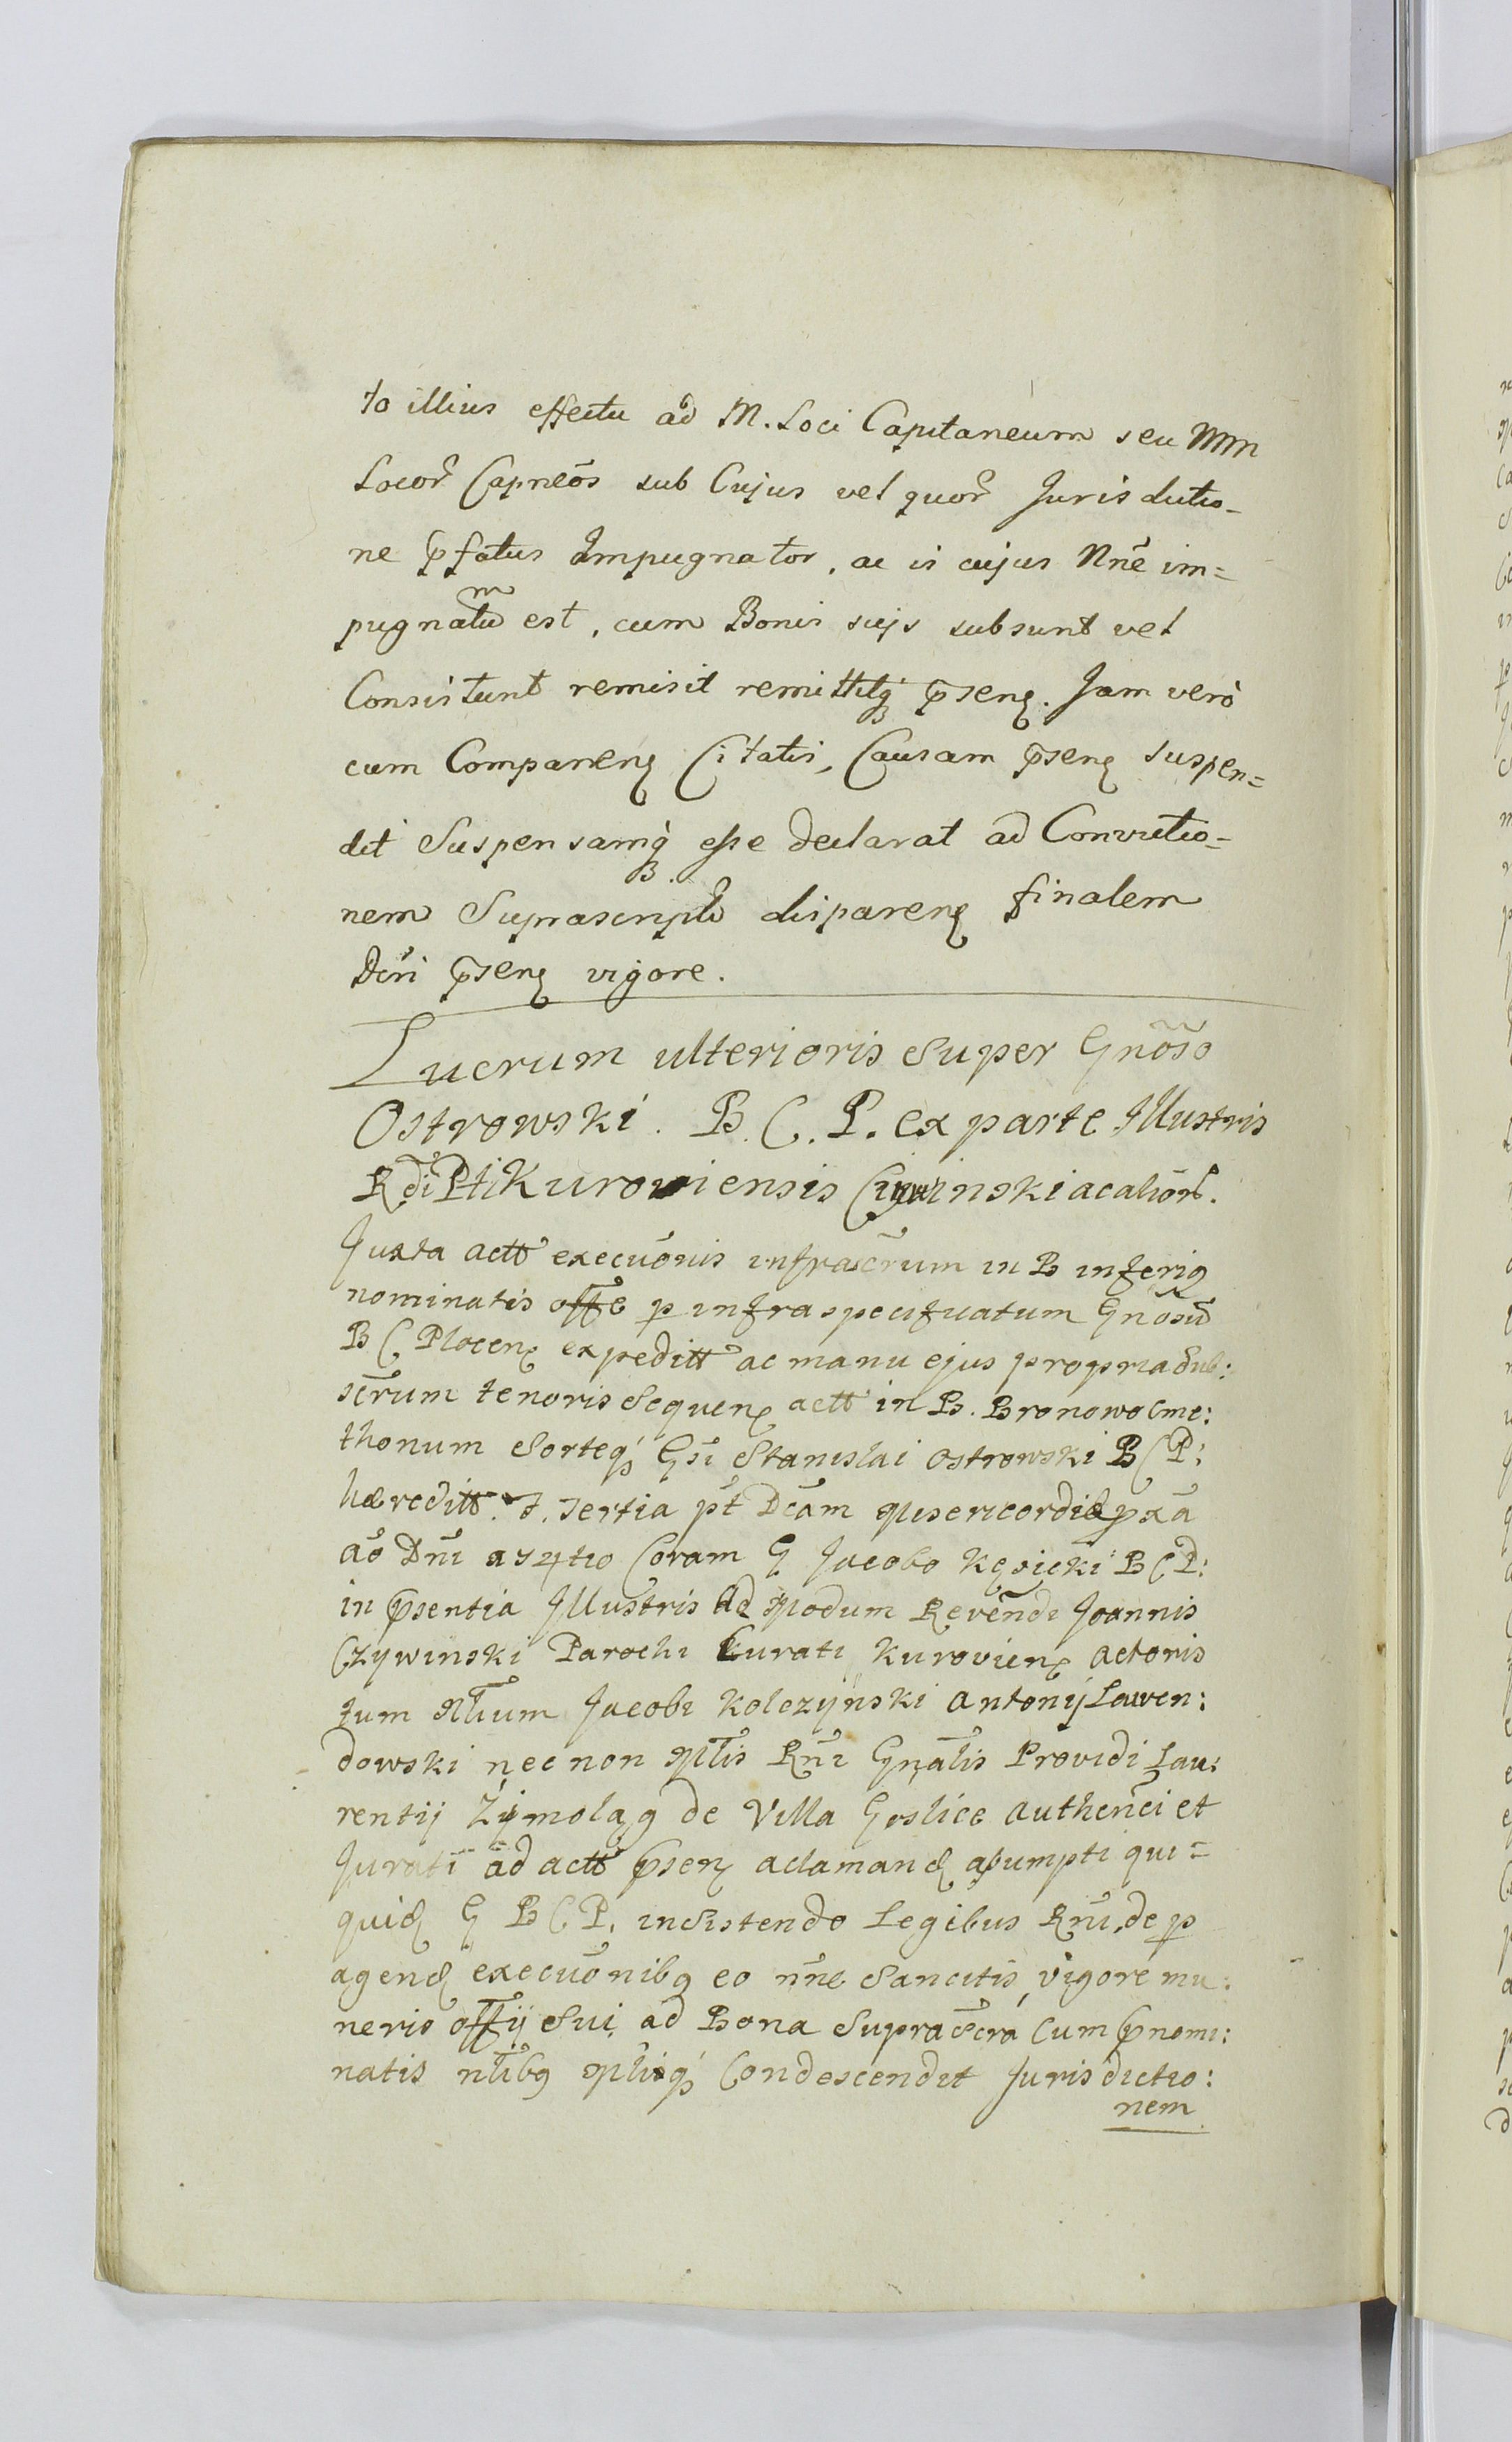 to illius effectu ad M. Loci Capitaneum seu Mm
Locor Capneos sub Cujus vel quor Jurisdictio-
ne pfatus Impugnator, ac is cujus Nne im=
pugnatum est, cum Bonis suis subsunt vel
Consistunt remisit remittitq psens. Jam vero
cum Comparens Citatis, Causam psens suspen=
dit Suspensamq esse declarat ad Convictio-
nem Suprascripti disparens finalem
Dcri psens vigore.
Lucrum ulterioris Super Gnoso
Ostrowski. B. C. P. ex parte Jllustris
Rdi Pti Kuroviensis acalior.
Juxta actt execuonis infrascrum in B inferiq
nominatis offe p infraspecificatum Gnosu
B C Plocens expeditt ac manu ejus propria Sub:
scrum tenoris Sequens actt in B. Bronowo Cme:
thonum Sorteq Gsi Stanislai Ostrowski B C P:
haereditt. F. Tertia pt Dcam Misericordiae pxa
ao Dni 1747io Coram G Jacobo Kęsicki B C P:
in psentia Jllustris Ad modum Revendi Joannis
Czywinski Parochi Curati Kuroviens actoris
tum Nlium Jacobi Kolczynski Antonij Lawen:
dowski nec non Mtis Rni Gnalis Providi Lau:
rentij Zymolag de Villa Goslice authenci et
Jurati ad actt psens aclamand assumpti qui=
quid G B C P. insistendo Legibus Rni, de p
agend execuonibq eo nne Sancitis, vigore mu:
neris offij Sui, ad Bona Suprascra Cum pnomi:
natis nlibq Mliq Condescendit Jurisdictio:
nem